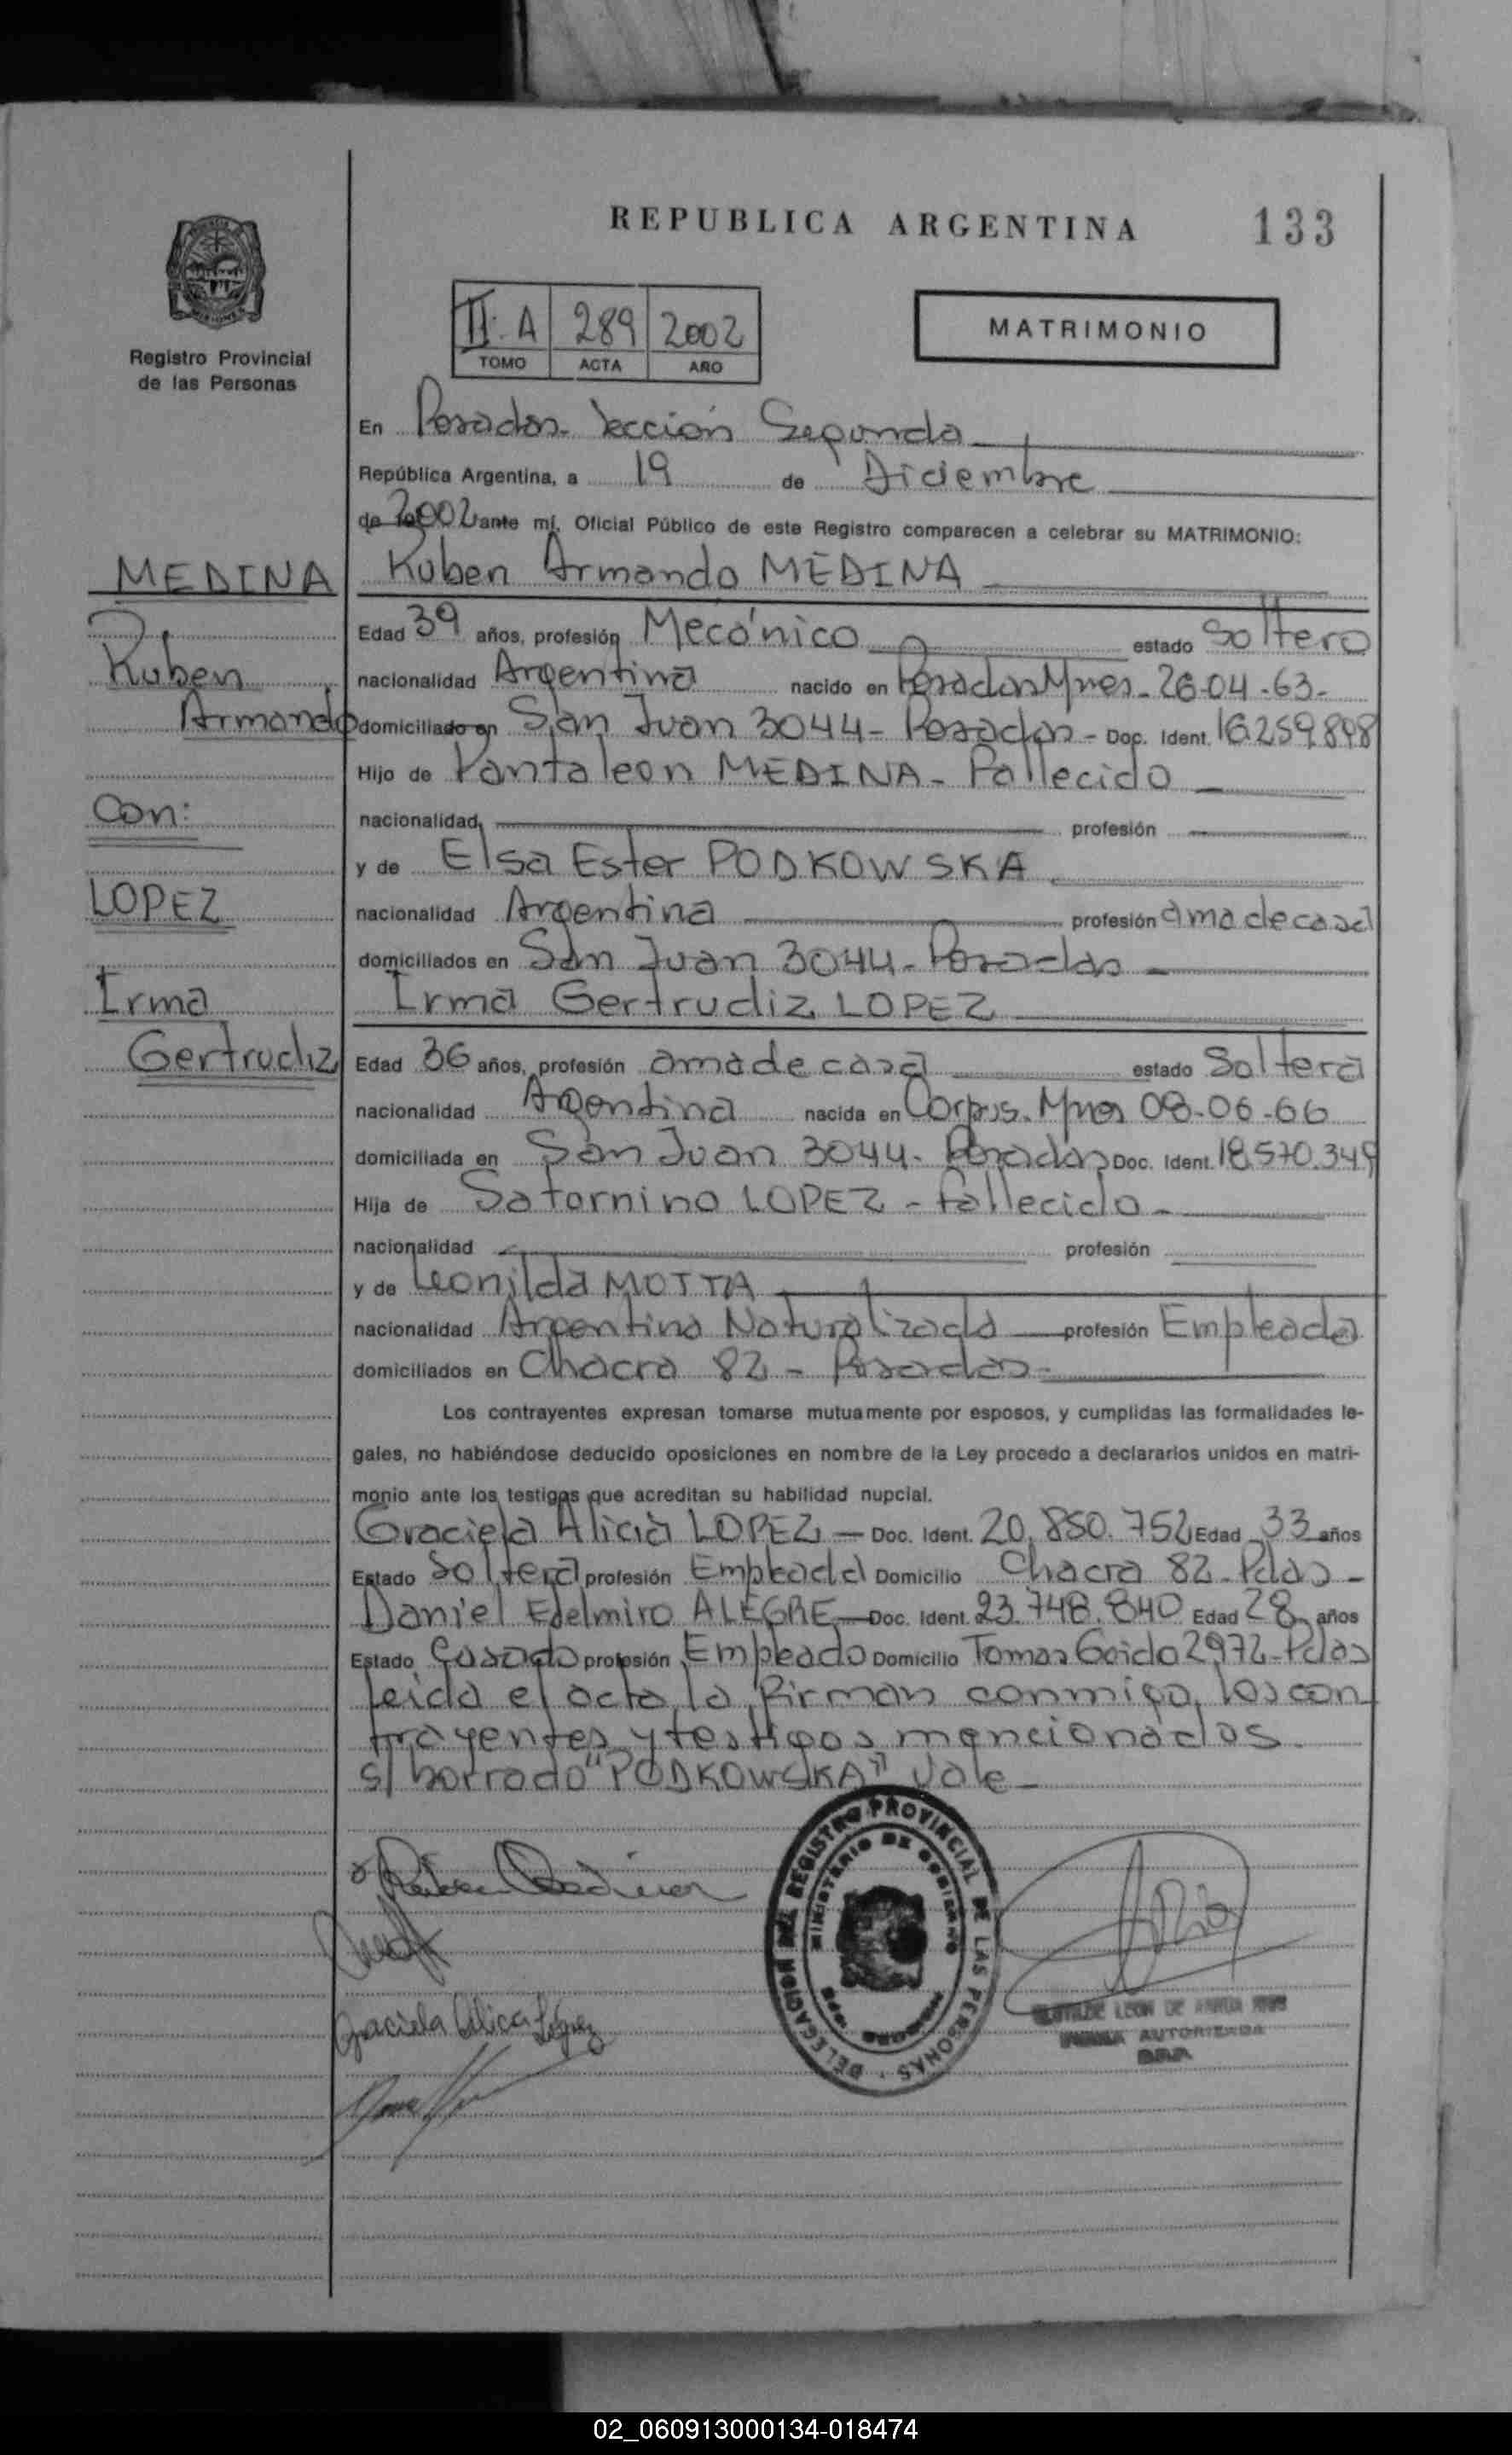 REPUBLICA ARGENTINA 133
Registro Provincial
de las Personas
II. A 289 2002
TOMO ACTA AÑO
MATRIMONIO
En Posadas - Sección Segunda
República Argentina, a 19 de Diciembre
de 2002 ante mí, Oficial Público de este Registro comparecen a celebrar su MATRIMONIO:
MEDINA
Ruben
Armando
Con:
LOPEZ
Irma
Gertrudiz
Ruben Armando MEDINA
Edad 39 años, profesión Mecánico estado Soltero
nacionalidad Argentina nacido en Posadas Mnes - 26-04-63-
domiciliado en San Juan 3044 - Posadas - Doc. Ident. 16.259.898
Hijo de Pantaleon MEDINA - Fallecido
nacionalidad profesión
y de Elsa Ester PODKOWSKA
nacionalidad Argentina profesión ama de casa
domiciliados en San Juan 3044 - Posadas
Irma Gertrudiz LOPEZ
Edad 36 años, profesión ama de casa estado Soltera
nacionalidad Argentina nacida en Corpus. Mnes 08-06-66
domiciliada en San Juan 3044 - Posadas Doc. Ident. 18.570.349
Hija de Saturnino LOPEZ - fallecido -
nacionalidad profesión
y de Leonilda MOTTA
nacionalidad Argentina Naturalizada profesión Empleada
domiciliados en Chacra 82 - Posadas -
Los contrayentes expresan tomarse mutuamente por esposos, y cumplidas las formalidades le-
gales, no habiéndose deducido oposiciones en nombre de la Ley procedo a declararlos unidos en matri-
monio ante los testigos que acreditan su habilidad nupcial.
Graciela Alicia LOPEZ - Doc. Ident. 20.850.752 Edad 33 años
Estado Soltera profesión Empleada Domicilio Chacra 82 - Pdas -
Daniel Edelmiro ALEGRE - Doc. Ident. 23.748.840 Edad 28 años
Estado Casado profesión Empleado Domicilio Tomas Guido 2972 - Pdas
leida el acta, la firman conmigo, los con
trayentes y testigos mencionados.
s/ borrado "PODKOWSKA" Vale -
Ruben Medina
Graciela Alicia López
DELEGACION DEL REGISTRO PROVINCIAL DE LAS PERSONAS
MINISTERIO DE GOBIERNO
LEON DE
AUTORIZADA
02_060913000134-018474